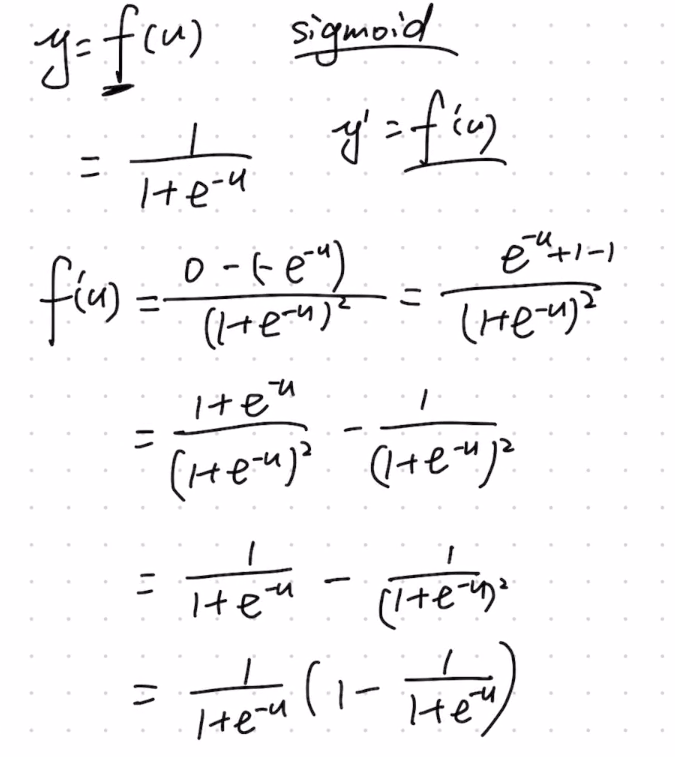 y = f(u) sigmoid
= 1/(1+e^{-u}) y' = f'(u)
f'(u) = (0 - (-e^{-u}))/(1+e^{-u})^2 = (e^{-u}+1-1)/(1+e^{-u})^2
= (1+e^{-u})/(1+e^{-u})^2 - 1/(1+e^{-u})^2
= 1/(1+e^{-u}) - 1/(1+e^{-u})^2
= 1/(1+e^{-u}) (1 - 1/(1+e^{-u}))